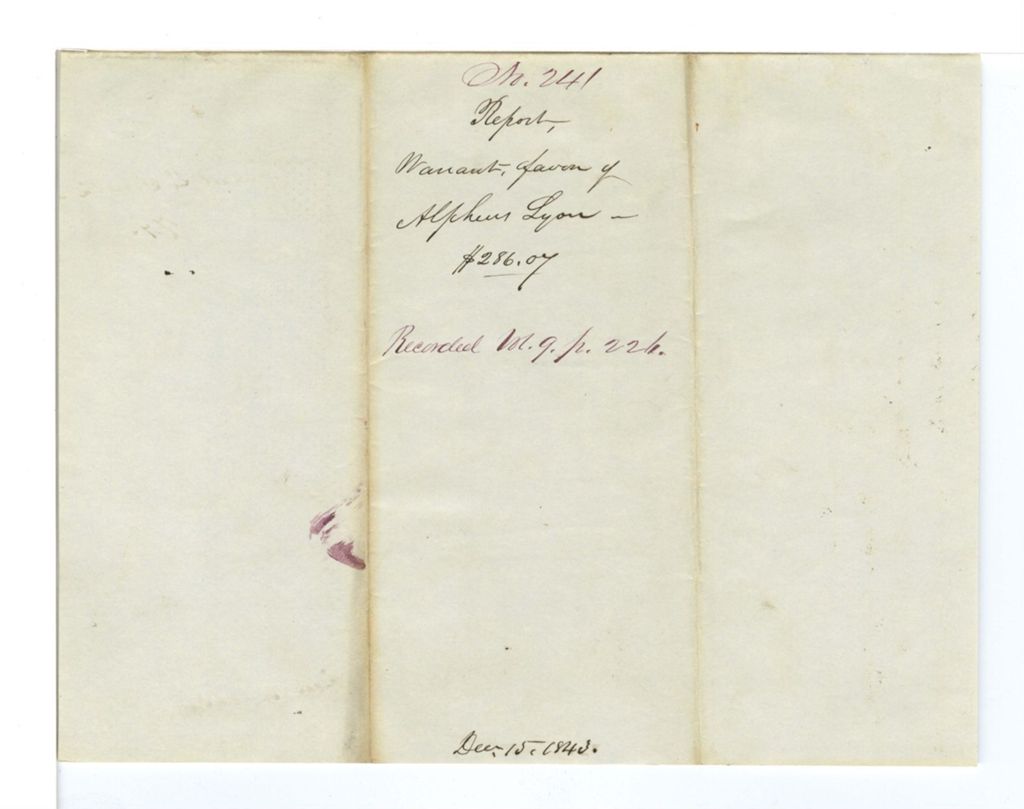 No. 241
Report,
Warrant, favor of
Alpheus Lyon —
$286.07
Recorded Vol. 9. p. 226.
Dec. 15. 1843.